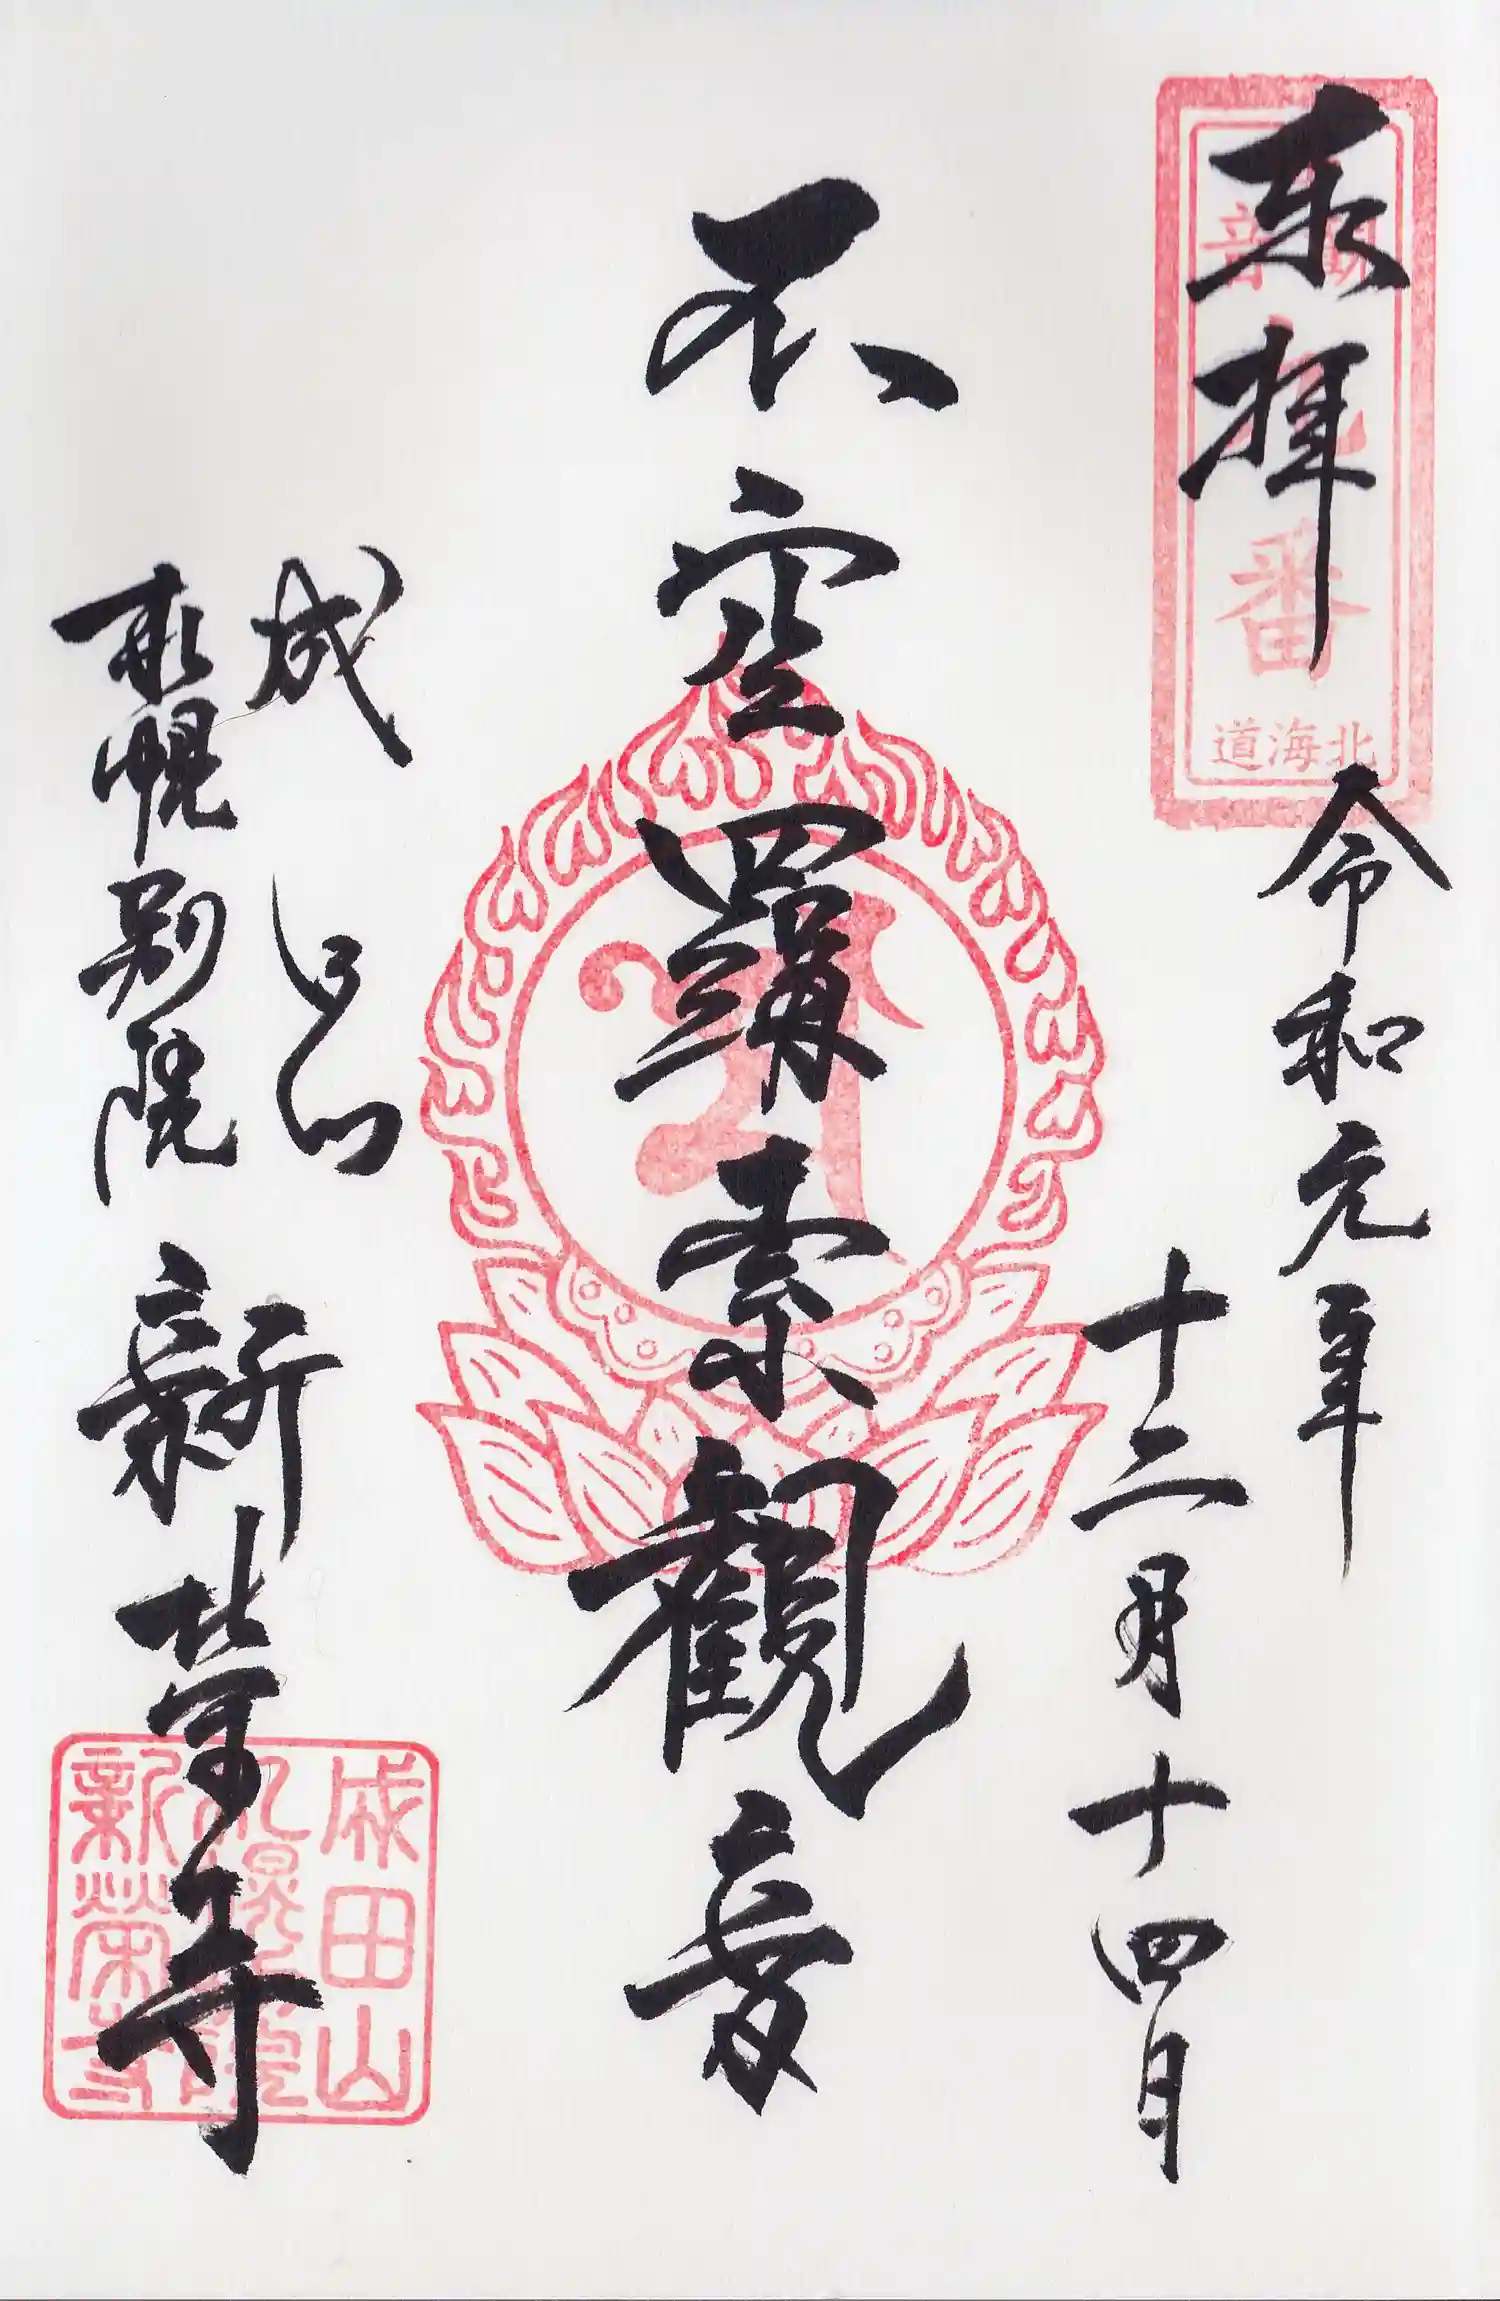 奉拝
番
北海道
令和元年
十二月十四日
不空羂索観音
成田山
札幌別院
新栄寺
成田山
札幌別院
新栄寺